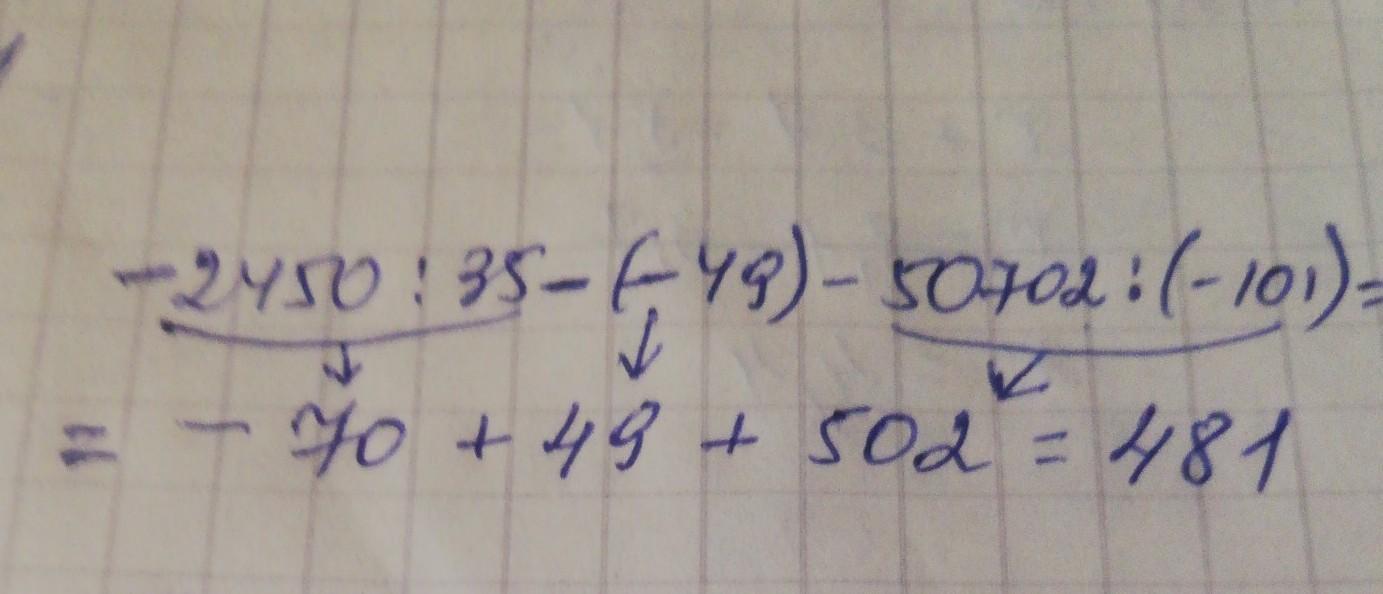 -2450 : 35 - (-49) - 50702 : (-101) =
= - 70 + 49 + 502 = 481